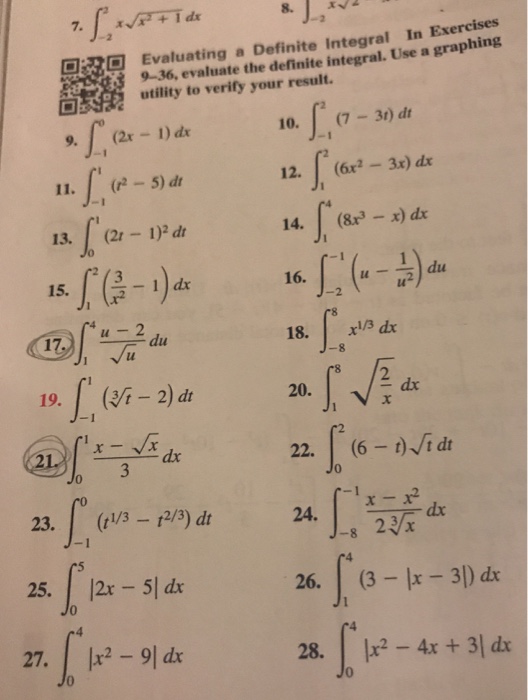 7. ∫_{-2}^{2} x√(x² + 1) dx
8. ∫_{-2} x√
Evaluating a Definite Integral In Exercises
9–36, evaluate the definite integral. Use a graphing
utility to verify your result.
9. ∫_{-1}^{0} (2x − 1) dx
10. ∫_{-1}^{2} (7 − 3t) dt
11. ∫_{-1}^{1} (t² − 5) dt
12. ∫_{1}^{2} (6x² − 3x) dx
13. ∫_{0}^{1} (2t − 1)² dt
14. ∫_{1}^{4} (8x³ − x) dx
15. ∫_{1}^{2} (3/x² − 1) dx
16. ∫_{-2}^{-1} (u − 1/u²) du
17. ∫_{1}^{4} (u − 2)/√u du
18. ∫_{-8}^{8} x^{1/3} dx
19. ∫_{-1}^{1} (∛t − 2) dt
20. ∫_{1}^{8} √(2/x) dx
21. ∫_{0}^{1} (x − √x)/3 dx
22. ∫_{0}^{2} (6 − t)√t dt
23. ∫_{-1}^{0} (t^{1/3} − t^{2/3}) dt
24. ∫_{-8}^{-1} (x − x²)/(2∛x) dx
25. ∫_{0}^{5} |2x − 5| dx
26. ∫_{1}^{4} (3 − |x − 3|) dx
27. ∫_{0}^{4} |x² − 9| dx
28. ∫_{0}^{4} |x² − 4x + 3| dx